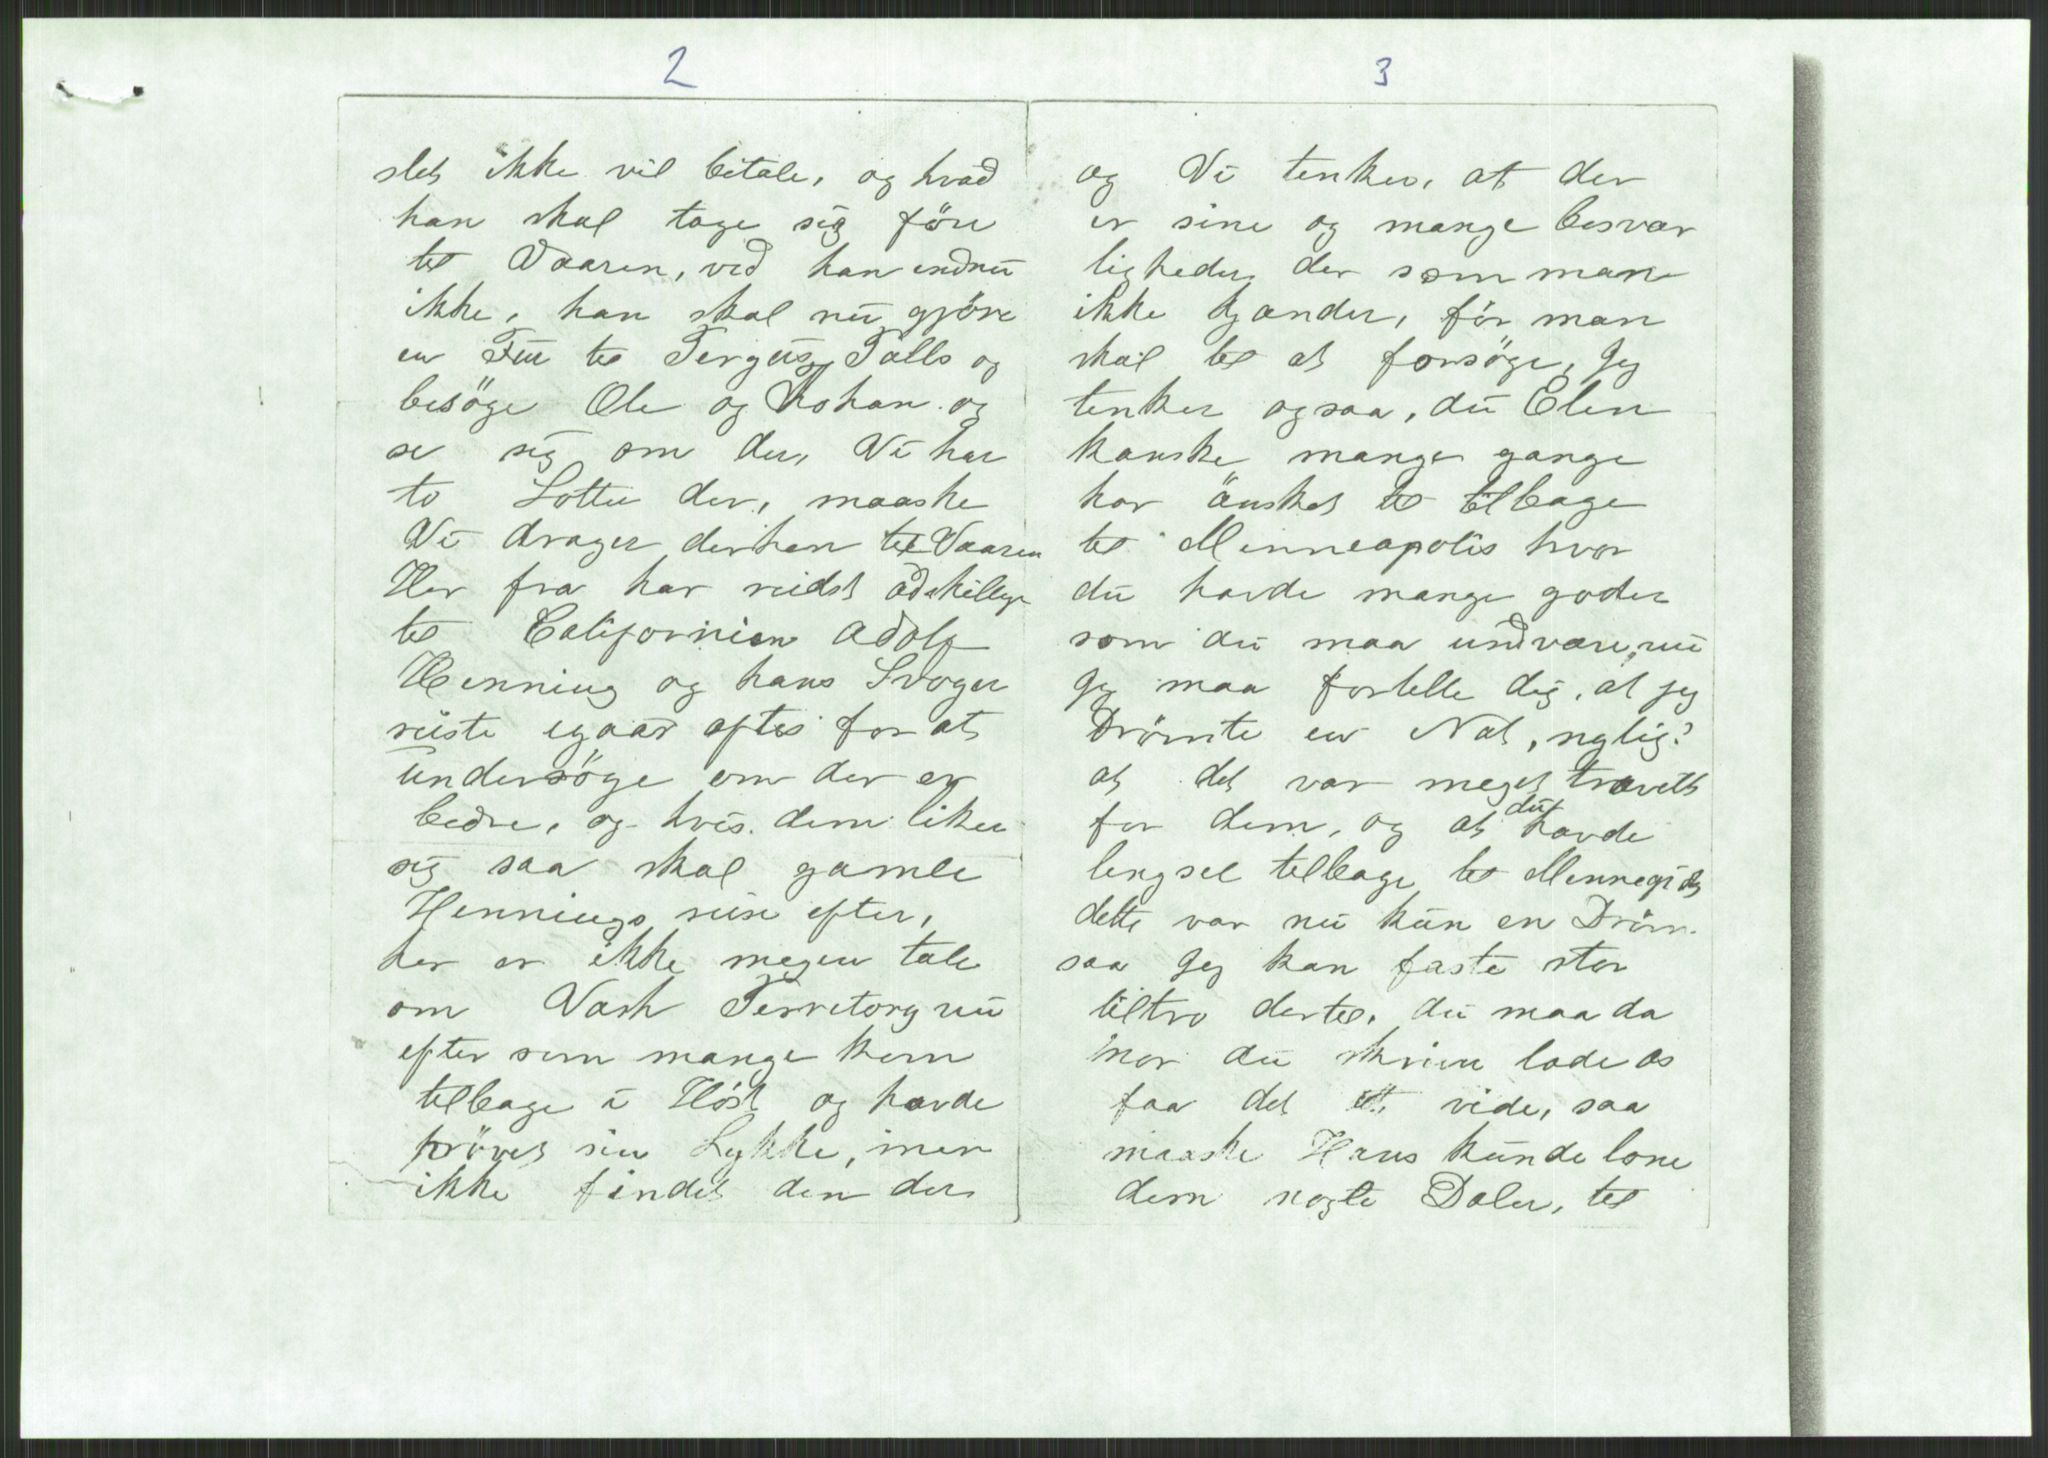 2
slet ikke vil betale, og hvad
han skal tage sig före
til Vaaren, ved han endnu
ikke, han skal nu gjöre
en Tur til Fergus Falls og
besöge Ole og Johan og
se sig om der, Vi har
to Lotter der, maaske
Vi drager derhen til Vaaren
Her fra har reidst adskillige
til Californien Adolf
Henning og hans Svoger
reiste igaar aftes for at
undersöge om der er
bedre, og hvis dem liker
sig saa skal gamle
Hennings reise efter,
her er ikke megen tale
om Vash Territory nu
efter som mange kom
tilbage i Høst og havde
prövet sin Lykke, men
ikke findet den der
3
og Vi tenker, at der
er sine og mange besvær
ligheder der som man
ikke kjender, för man
skal til at forsöge, Jeg
tenker ogsaa, du Elen
kanske mange gange
har önsket til tilbage
til Minneapolis hvor
du havde mange goder
som du maa undvære nu
Jeg maa fortelle dig, at jeg
Drömte en Nat, nylig?
at det var meget travelt
for dem, og at du havde
lengsel tilbage til
dette var nu kun en Dröm
saa Jeg kan faste stor
tiltro dertil, du maa da
nor du skriver lade os
faa det at vide, saa
maaske Hans kunde lone
dem nogle Daler, til